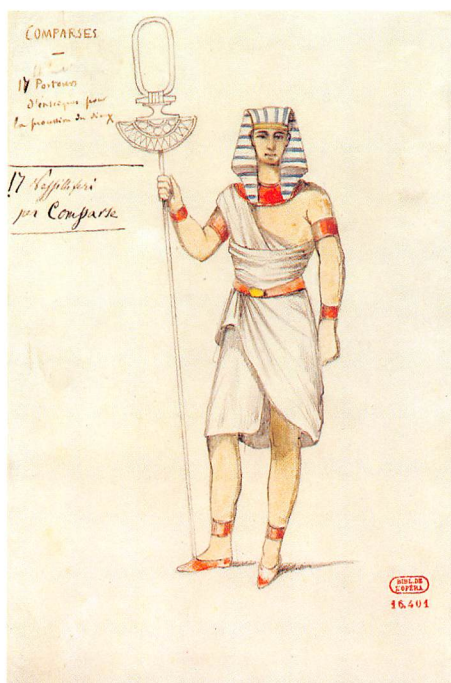 COMPARSES
17 Porteurs
d'enseignes pour
la procession du dieux
17 Vessilliferi
per Comparse
BIBL. DE
L'OPÉRA
16.401